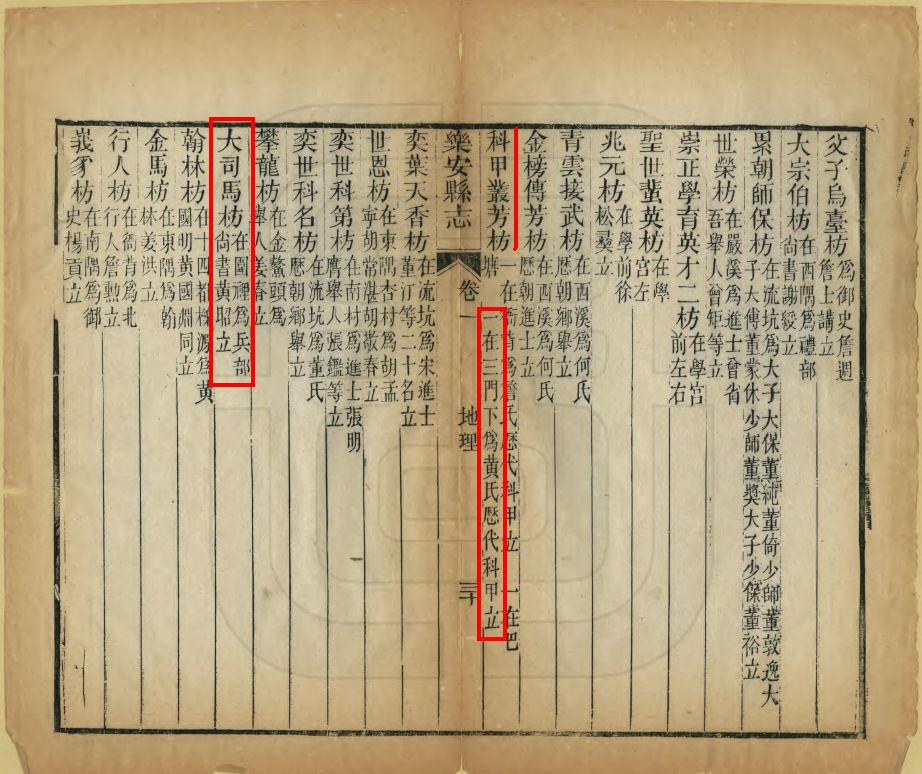 父子烏臺坊爲御史詹週詹上講立
大宗伯坊在西隅爲禮部尚書謝毅立
累朝師保坊在流坑爲大子大保董純董倚少師董敦逸大子大傅董蒙休少師董奬大子少保董裕立
世榮坊在嚴溪爲進士曾省吾舉人曾矩等立
崇正學育英才二坊在學宮前左右
聖世蜚英坊在學宮左
兆元坊在學前徐松彞立
青雲接武坊在西溪爲何氏歷朝鄉舉立
金榜傳芳坊在西溪爲何氏歷朝進士立
科甲叢芳坊一在衙背爲詹氏歷代科甲立 一在巴塘 一在三門下爲黃氏歷代科甲立
樂安縣志 卷一 地理 三十
奕葉天香坊在流坑爲宋進士董汀等二十名立
世恩坊在東隅杏村爲胡孟寧胡常湛胡敬春立
奕世科第坊在南村爲進士張明舉人張鑑等立
奕世科名坊在流坑爲董氏歷朝鄉舉立
攀龍坊在金鰲頭爲舉人姜春立
大司馬坊在園裡爲兵部尚書黃昭立
翰林坊在十四都櫟源爲黃國明黃淵同立
金馬坊在東隅爲翰林姜洪立
行人坊在衙背爲北行人詹勳立
峩豸坊在南隅爲御史楊貢立